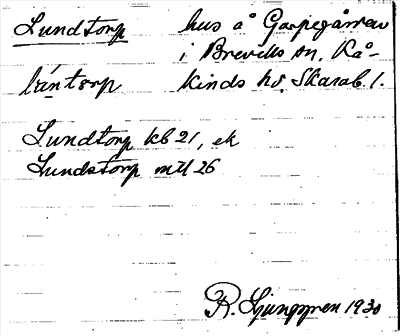 Lundtorp hus å Gaspegården
i Breviks sn. Kå-
lúntorp kinds hd. Skarab. l.
Lundtorp kb 21, ek
Lundstorp mtl 26
R. Ljunggren 1930